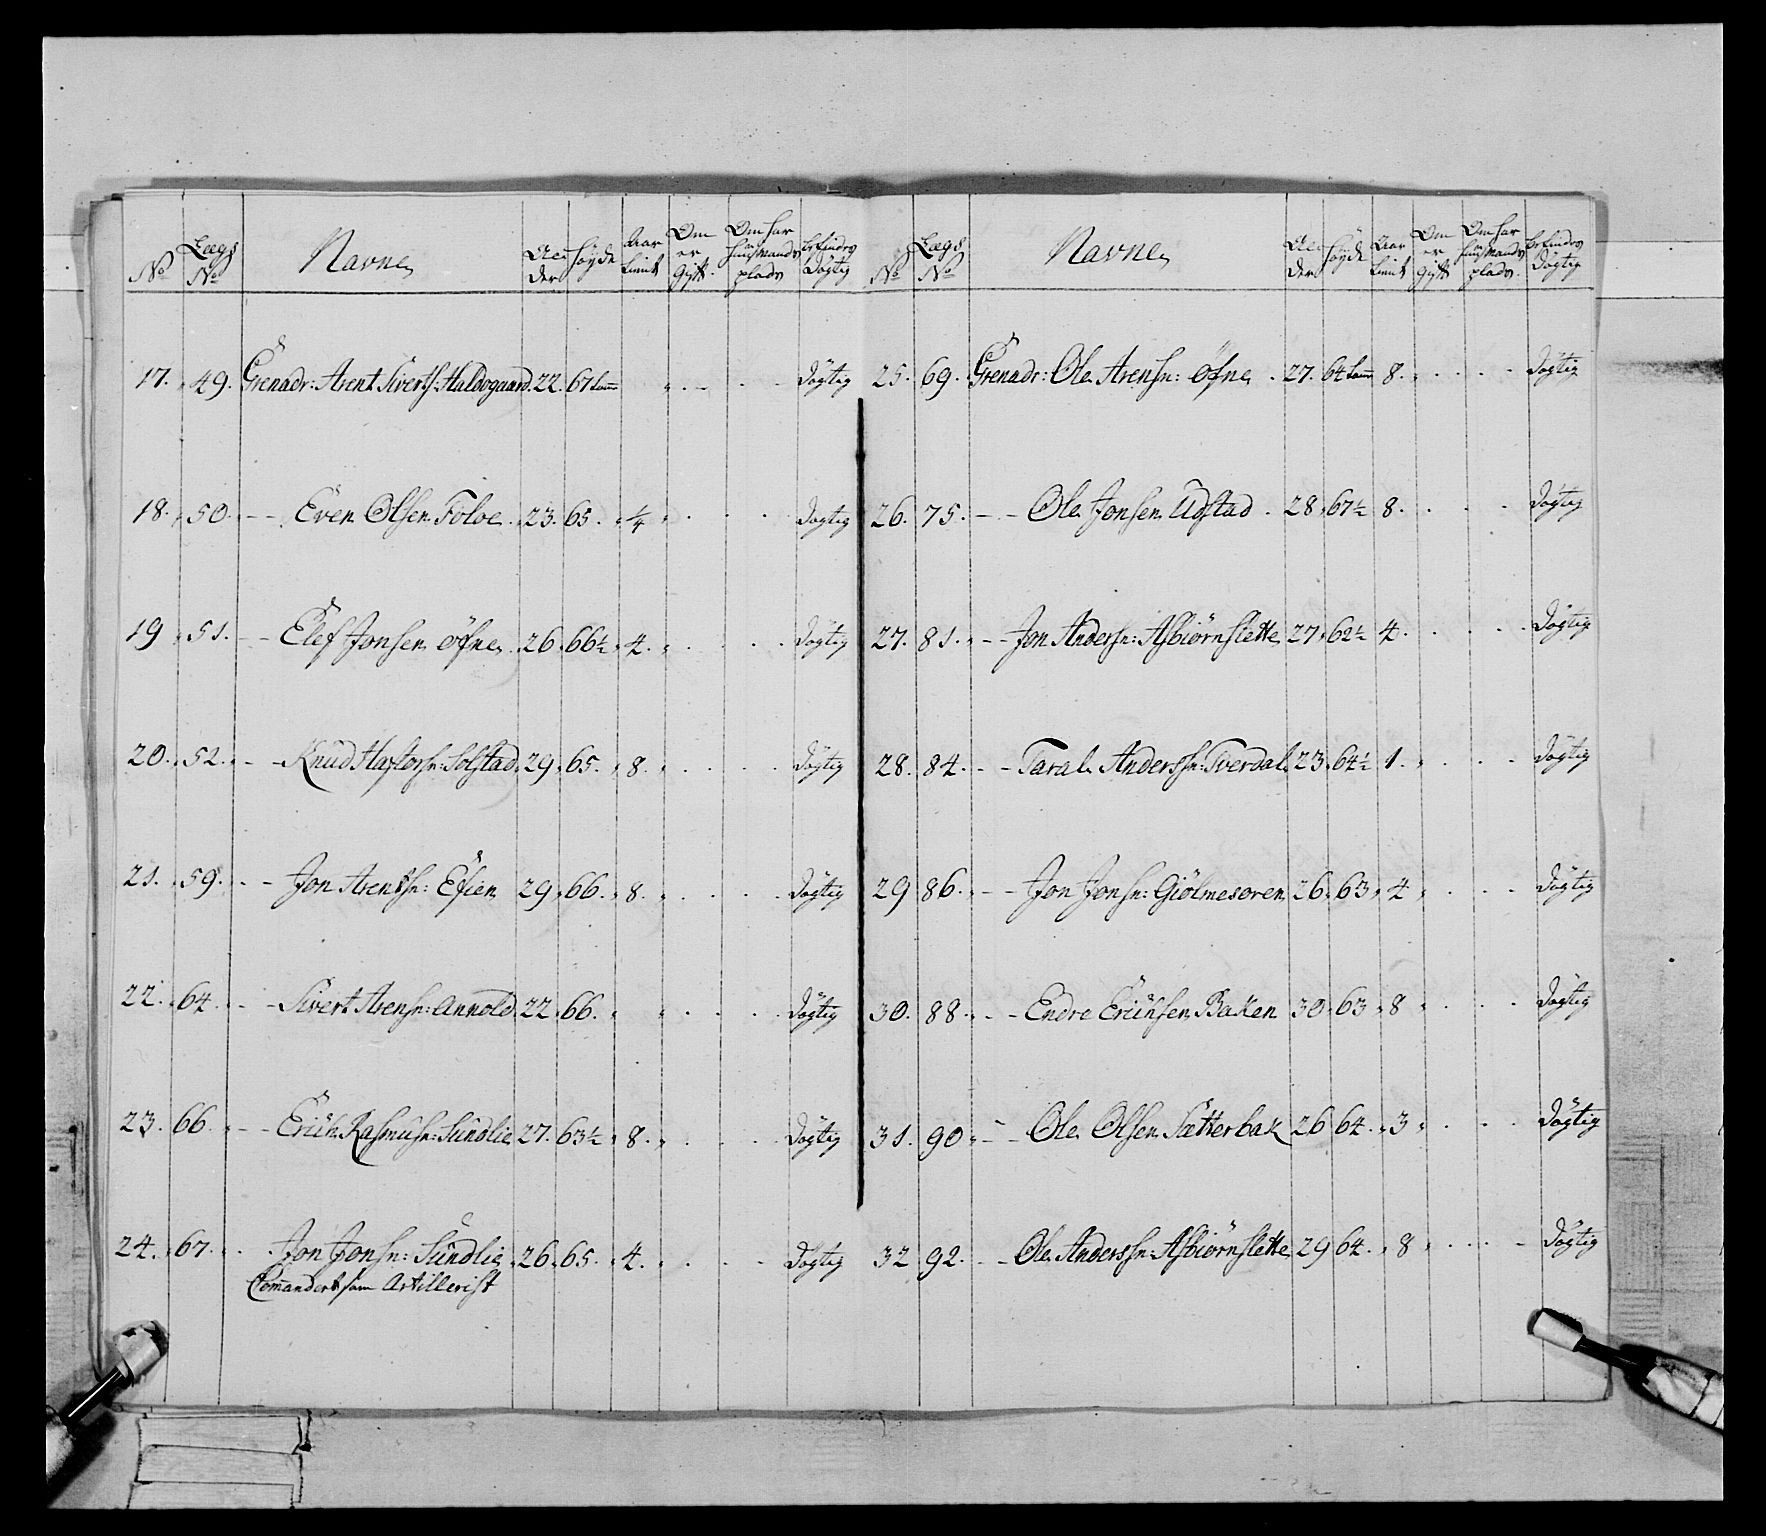 No Lægs No Navne Alder Høyde Aar tient Om er Gift Om har Huusmands plads befindes Dögtig
17. 49. Grenadr: Arent Sivertsn: Haldogaard. 22. 67 Tom̄ Dögtig
18. 50. - - Even Olsen Foloe. 23. 65. 1/4 Dögtig
19 51. - - Elef Jonsen Öfne. 26. 66½ 4. Dögtig
20. 52. - - Knud Hastorsn: Solstad. 29. 65. 8. Dögtig
21. 59. - - Jon Arentsn: Efien 29. 66. 8. Dögtig
22. 64. - - Sivert Arensn: Annold. 22. 66. Dögtig
23. 66. - - Erich Rasmusn: Sundlie 27. 63½ 8. Dögtig
24. 67. Jon Jonsn: Sundlie. 26. 65. 4. Dögtig
Com̄andert som Artillerist
No Lægs No Navne Alder Høyde Aar tient Om er Gift Om har Huusmands plads. befindes Dögtig
25. 69. Grenadr: Ole Arensn: Öfne. 27. 64 Tom̄ 8. Dögtig
26. 75. - - Ole Jonsen Udstad. 28. 67½ 8. Dögtig
27. 81. - - Jon Andersn: Asbiörnslette 27. 62½ 4. Dögtig
28. 84. - - Taral Anderssn: Sverdal 23. 64½ 1. Dögtig
29 86. - - Jon Jonsn: Giölmesøren 26. 63. 4 Dögtig
30. 88. - - Endre Erichsen Baken 30. 63. 8 Dögtig
31. 90. - - Ole Olsen Sætterbak 26 64. 3 Dögtig
32 92. - - Ole Anderssn: Asbiörnslette 29 64. 8 Dögtig